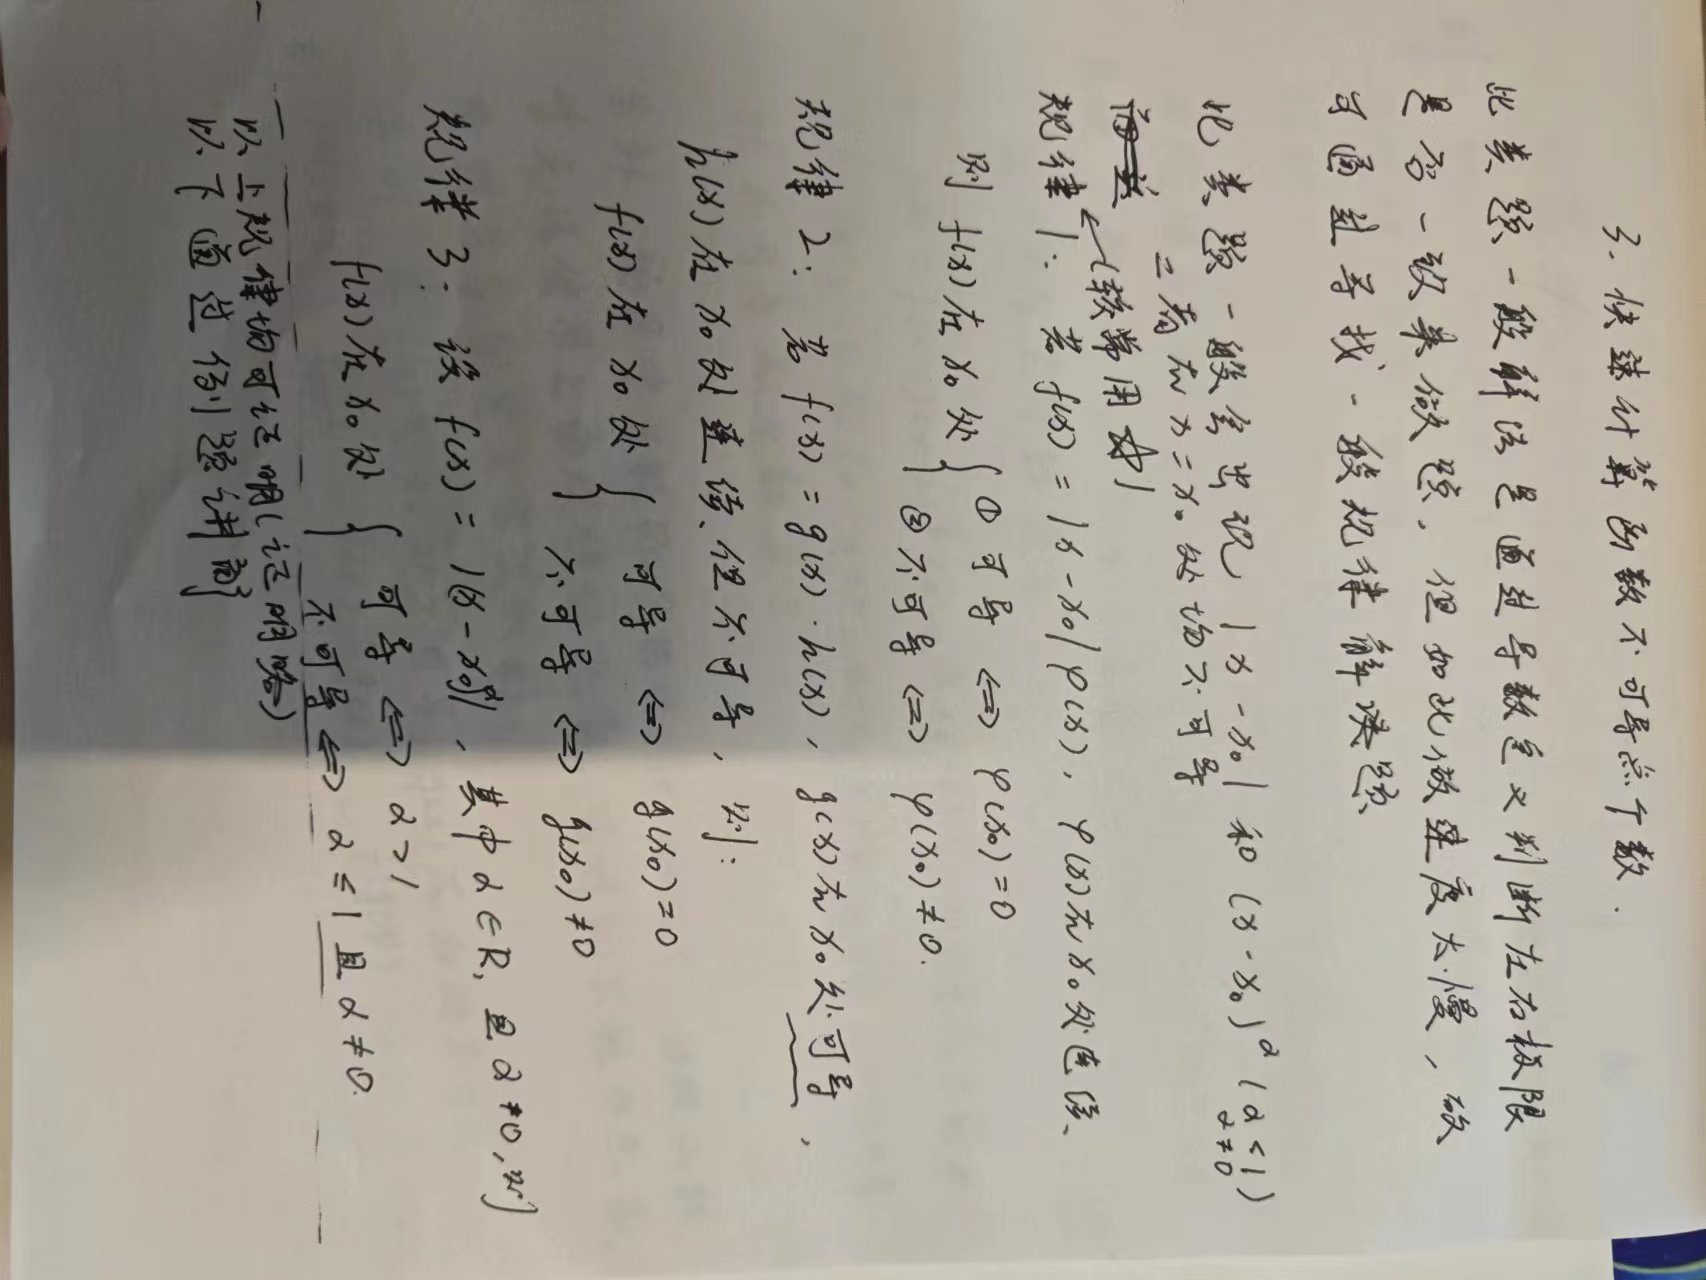 3. 快速计算函数不可导点个数.
此类题一般解法是通过导数定义判断左右极限
是否一致来做题, 但如此做速度太慢, 故
可通过寻找一般规律解决题
此类题一般会出现 |x-x₀| 和 (x-x₀)^α (α<1 α≠0)
二者在x=x₀处均不可导
(较常用☆)
规律1: 若f(x)=|x-x₀|φ(x), φ(x)在x₀处连续、
则f(x)在x₀处{ ① 可导 ⇔ φ(x₀)=0
② 不可导 ⇔ φ(x₀)≠0.
规律2: 若f(x)=g(x)·h(x), g(x)在x₀处可导,
h(x)在x₀处连续、但不可导, 则:
f(x)在x₀处{ 可导 ⇔ g(x₀)=0
不可导 ⇔ g(x₀)≠0
规律3: 设f(x)=|(x-x₀)^α|, 其中α∈R, 且α≠0, 则
f(x)在x₀处{ 可导 ⇔ α>1
不可导 ⇔ α≤1且α≠0.
以上规律均可证明(证明略)
以下通过例题讲解